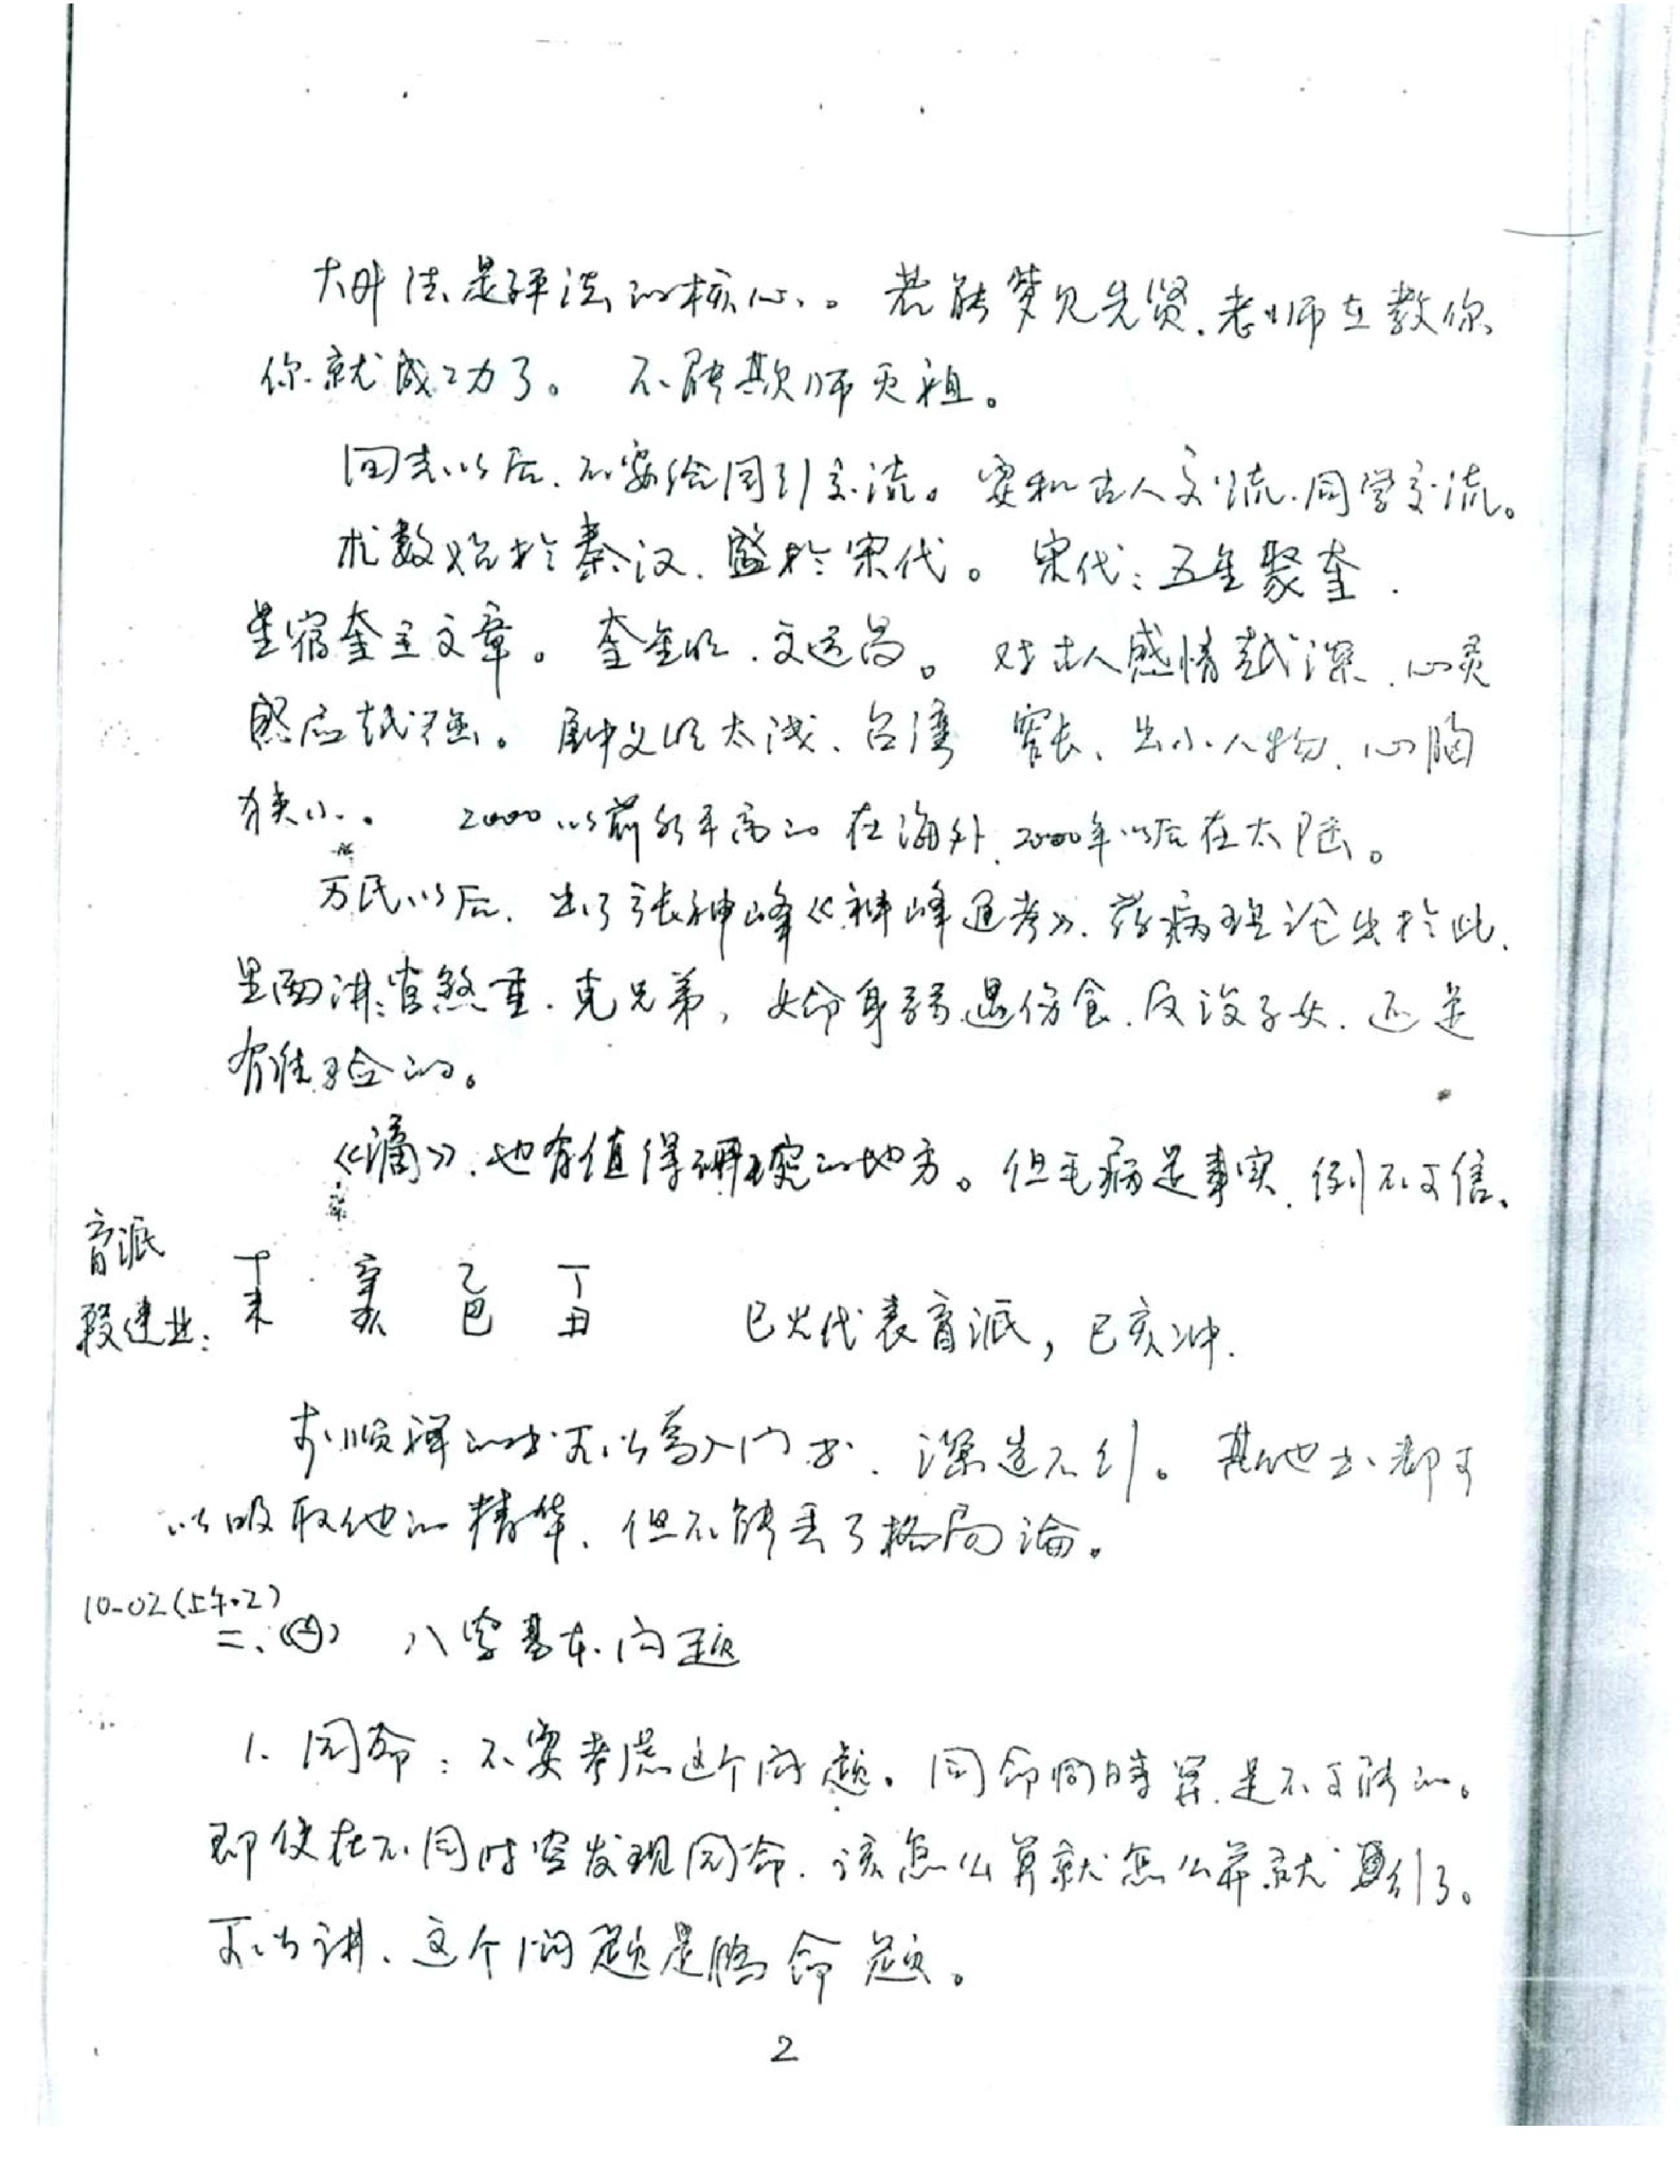 法是子平法的核心。若能梦见先贤、老师在教你
你就成功了。不能欺师灭祖。
回去以后,不要给同行交流。要和古人交流,同学交流。
术数始於秦汉,盛於宋代。宋代:五星聚奎.
星宿奎主文章。奎星明,文运昌。对古人感情越深,心灵
感应越强。太浅、台湾窄长、出小人物,心胸
狭小。2000以前水平高的在海外,2000年以后在大陆。
万民以后,出了张神峰《神峰通考》,病药理论出於此.
里面讲:官煞重,克兄弟,女命身弱遇伤食,反没子女,还是
有准验的。
《滴》,也有值得研究的地方。但毛病是事实,例不可信。
盲派
段建业:
丁 辛 乙 丁
未 亥 巳 丑 巳火代表盲派,巳亥冲.
李顺祥的书可以为入门书,深造不行。其他书都可
以吸取他的精华,但不能丢了格局论。
10-02(上午.2)
二、(四) 八字基本问题
1. 同命:不要考虑这个问题。同命同时算,是不可能的。
即使在不同时空发现同命,该怎么算就怎么算就行了。
可以讲,这个问题是伪命题。
2